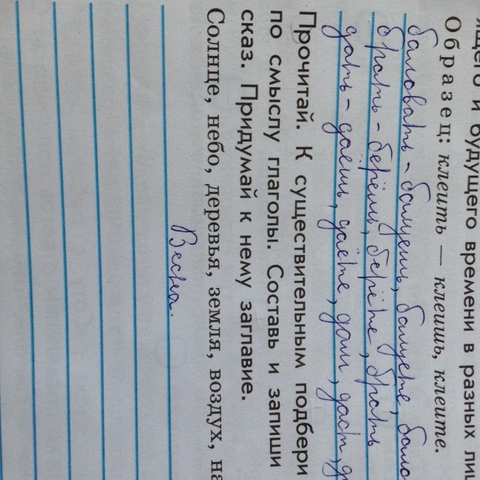 ящего и будущего времени в разных
Образец: клеить — клеишь, клеите.
баловать - балуешь, балуете,
брать - берёшь, берёте, брать
дать - даешь, даёте, дали, даст,
Прочитай. К существительным подбери
по смыслу глаголы. Составь и запиши
сказ. Придумай к нему заглавие.
Солнце, небо, деревья, земля, воздух,
Весна.